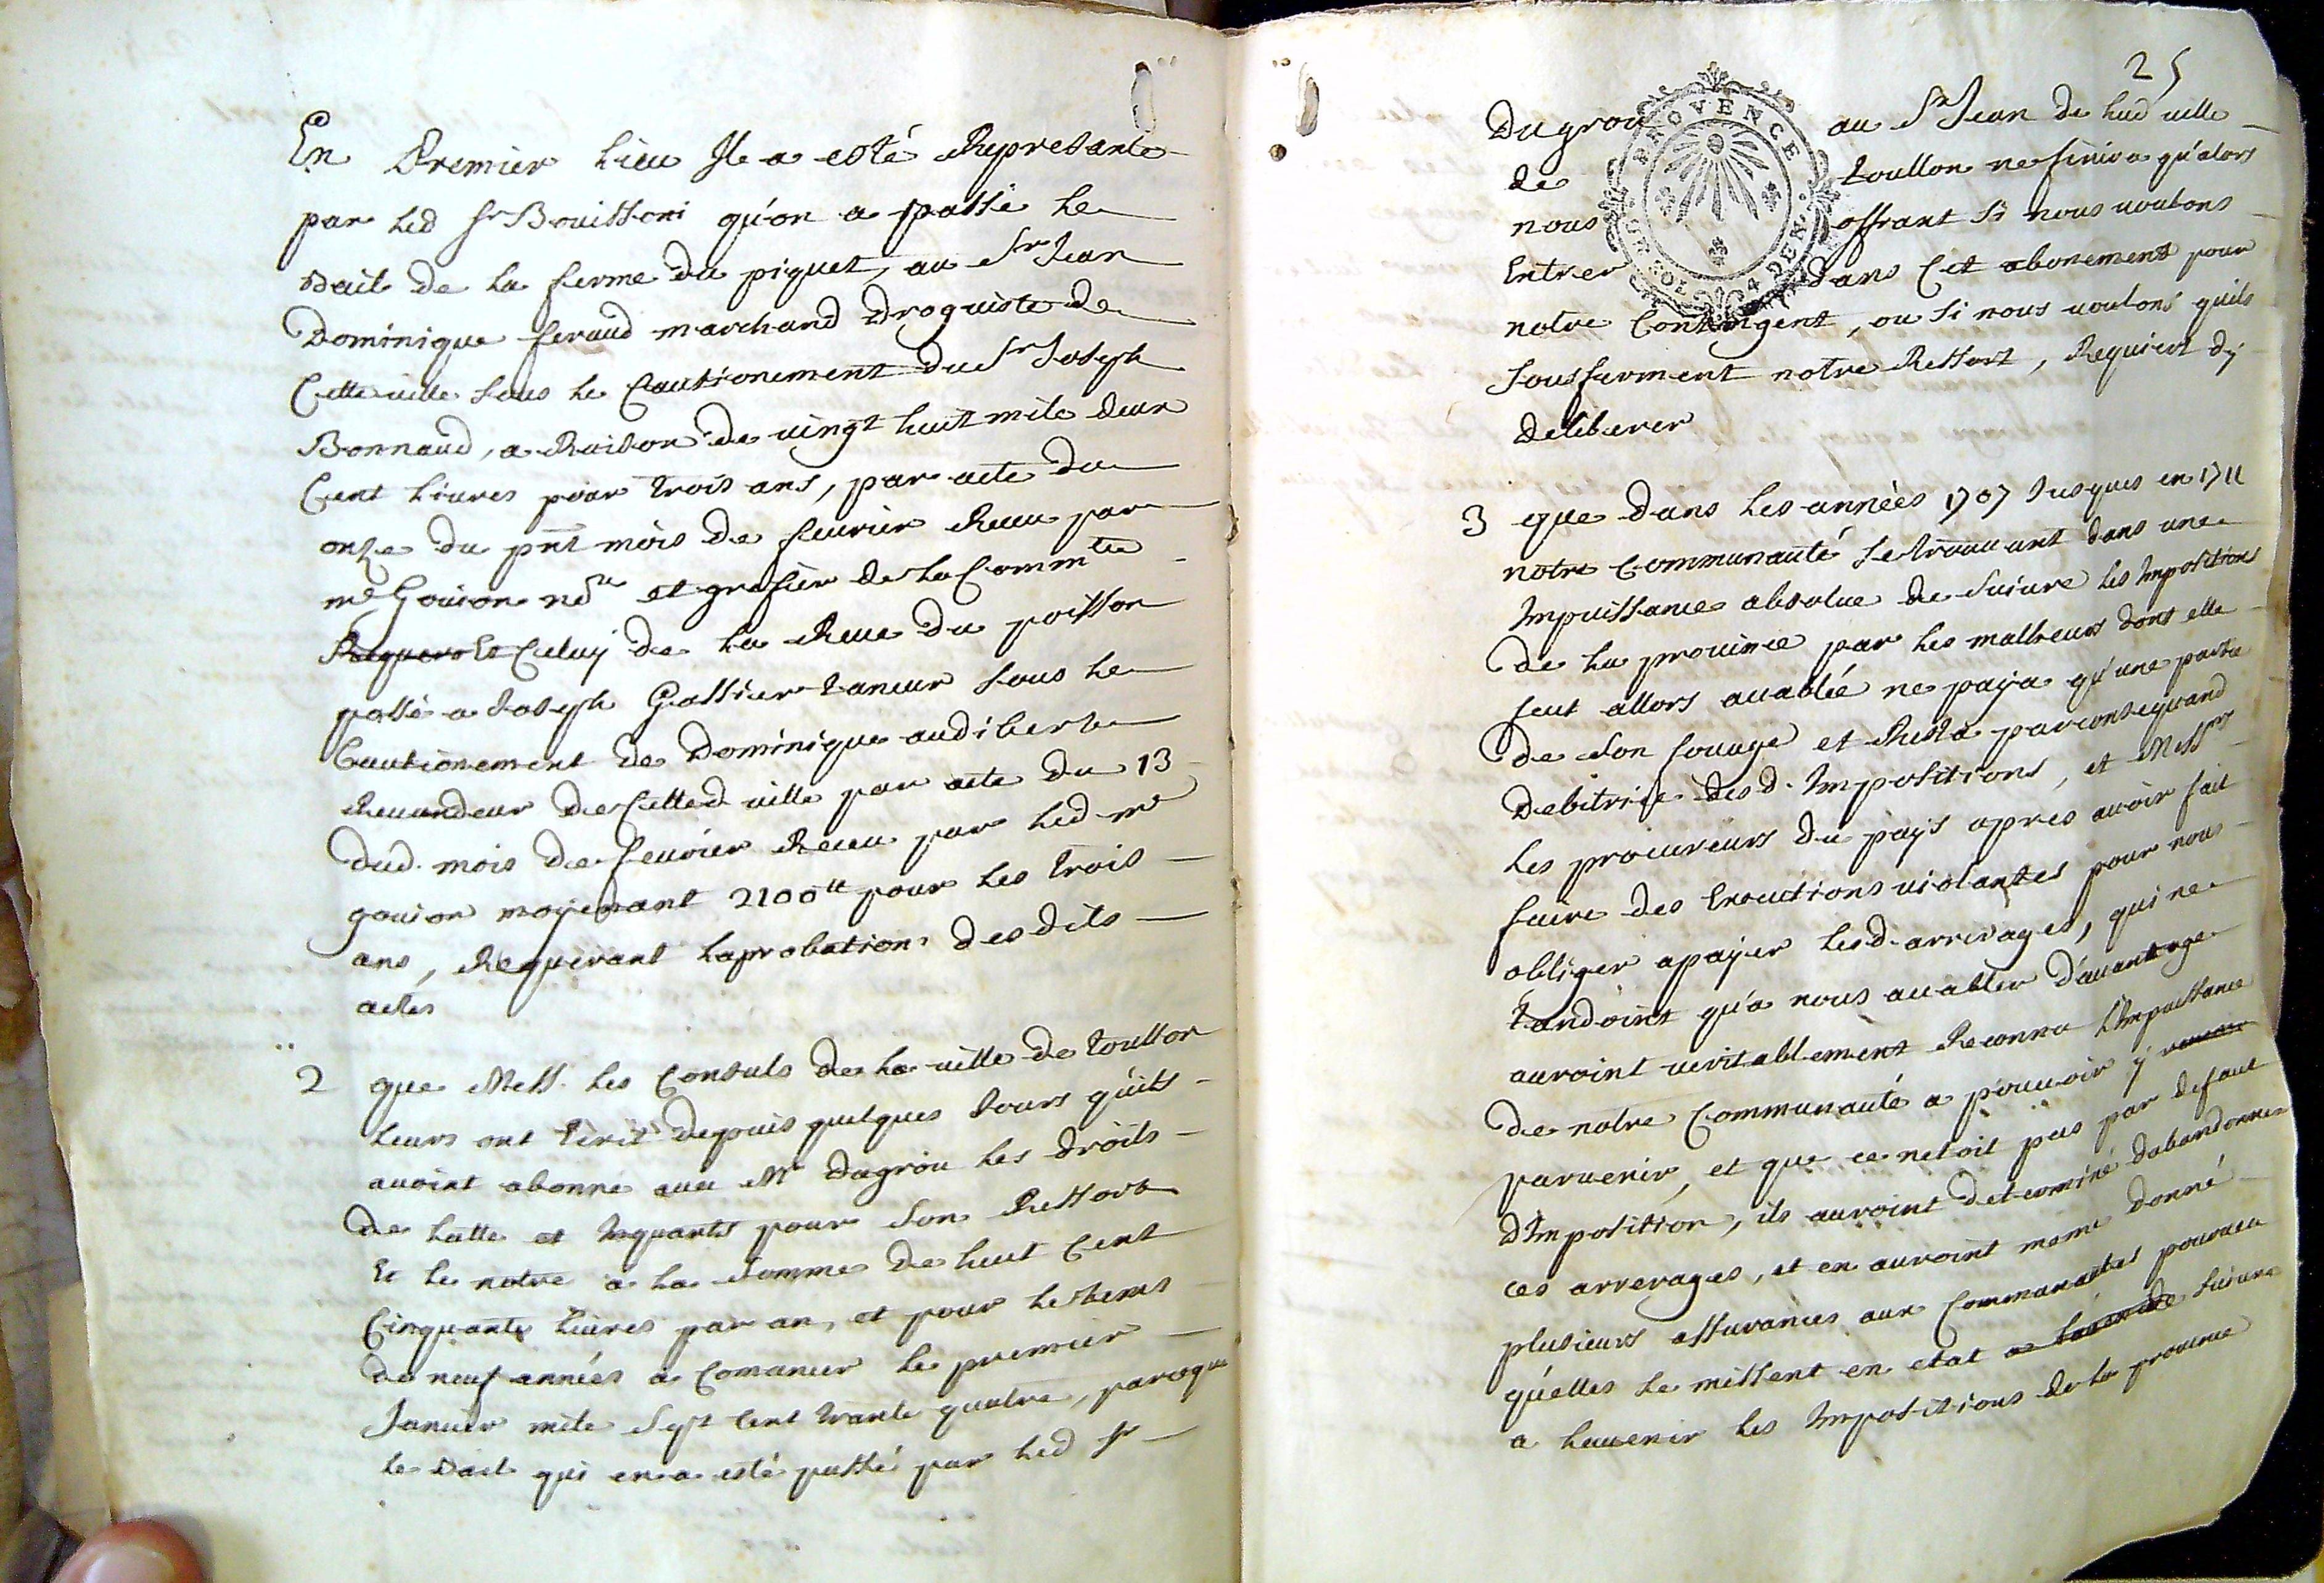 En Premier lieu Il a esté Represanté
par led Sr Bouissoni qu'on a passé le
Bail de la ferme du piquet, au Sr Jean
Dominique feraud marchand Droguiste de
Cette ville sous le Cautionement du Sr Joseph
Bonnaud, a Raison de vingt huit mile deux
Cent livres pour trois ans, par acte du
onze du pnt mois de fevrier Receu par
me Gouion nore et grefier de la Commte
Requera Et Celuy de la Reve du poisson
passé a Joseph Gassier taneur sous le
Cautionement de Dominique audibert
Revandeur de Cetted ville par acte du 13
dud. mois de fevrier Receu par led me
gouion moyenant 2100tt pour les trois
ans, Requerant laprobation des dits
actes
2 que Mess. les Consuls de la ville de toullon
leurs ont Ecrit depuis quelques Jours quils
avoint abonné avec Mr Dugrou les droits
de latte et Inquants pour son Ressort
Et le notre a la somme de huit Cent
Cinquante livres par an, et pour le tems
de neuf années a Comancer le premier
Janvier mile Sept Cent trante quatre, parceque
le Bail qui en a esté passé par led Sr
25
Dugrou au Sr Jean de lad ville
de toullon ne finira qu'alors
nous offrant si nous voulons
Entrer dans Cet abonement pour
notre Contingent, ou si nous voulons quils
sousferment notre Ressort, Requiert dy
deliberer
PROVENCE
SOL 4 DEN.
3 que dans les années 1707 Jusques en 1711
notre Communauté se trouvant dans une
Impuissance absolue de suivre les Impositions
de la province par les malheurs dont elle
feut allors acablée ne paya qu'une partie
de son fouage et Resta parconsequand
Debitrice des d. Impositions, et Messrs
les procureurs du pays apres avoir fait
faire des Executions violantes pour nous
obliger a payer lesd. arrerages, qui ne
tandoint qu'a nous acabler d'avantage
auroint veritablement Reconnu l'Impuissance
de notre Communauté a pouvoir y
parvenir, et que ce netoit pas par defaut
d'Imposition, ils auroint determiné dabandonner
ces arrerages, et en auroint meme donné
plusieurs assurances aux Communautes pourveu
qu'elles se missent en etat de suivre
a lavenir les Impositions de la province